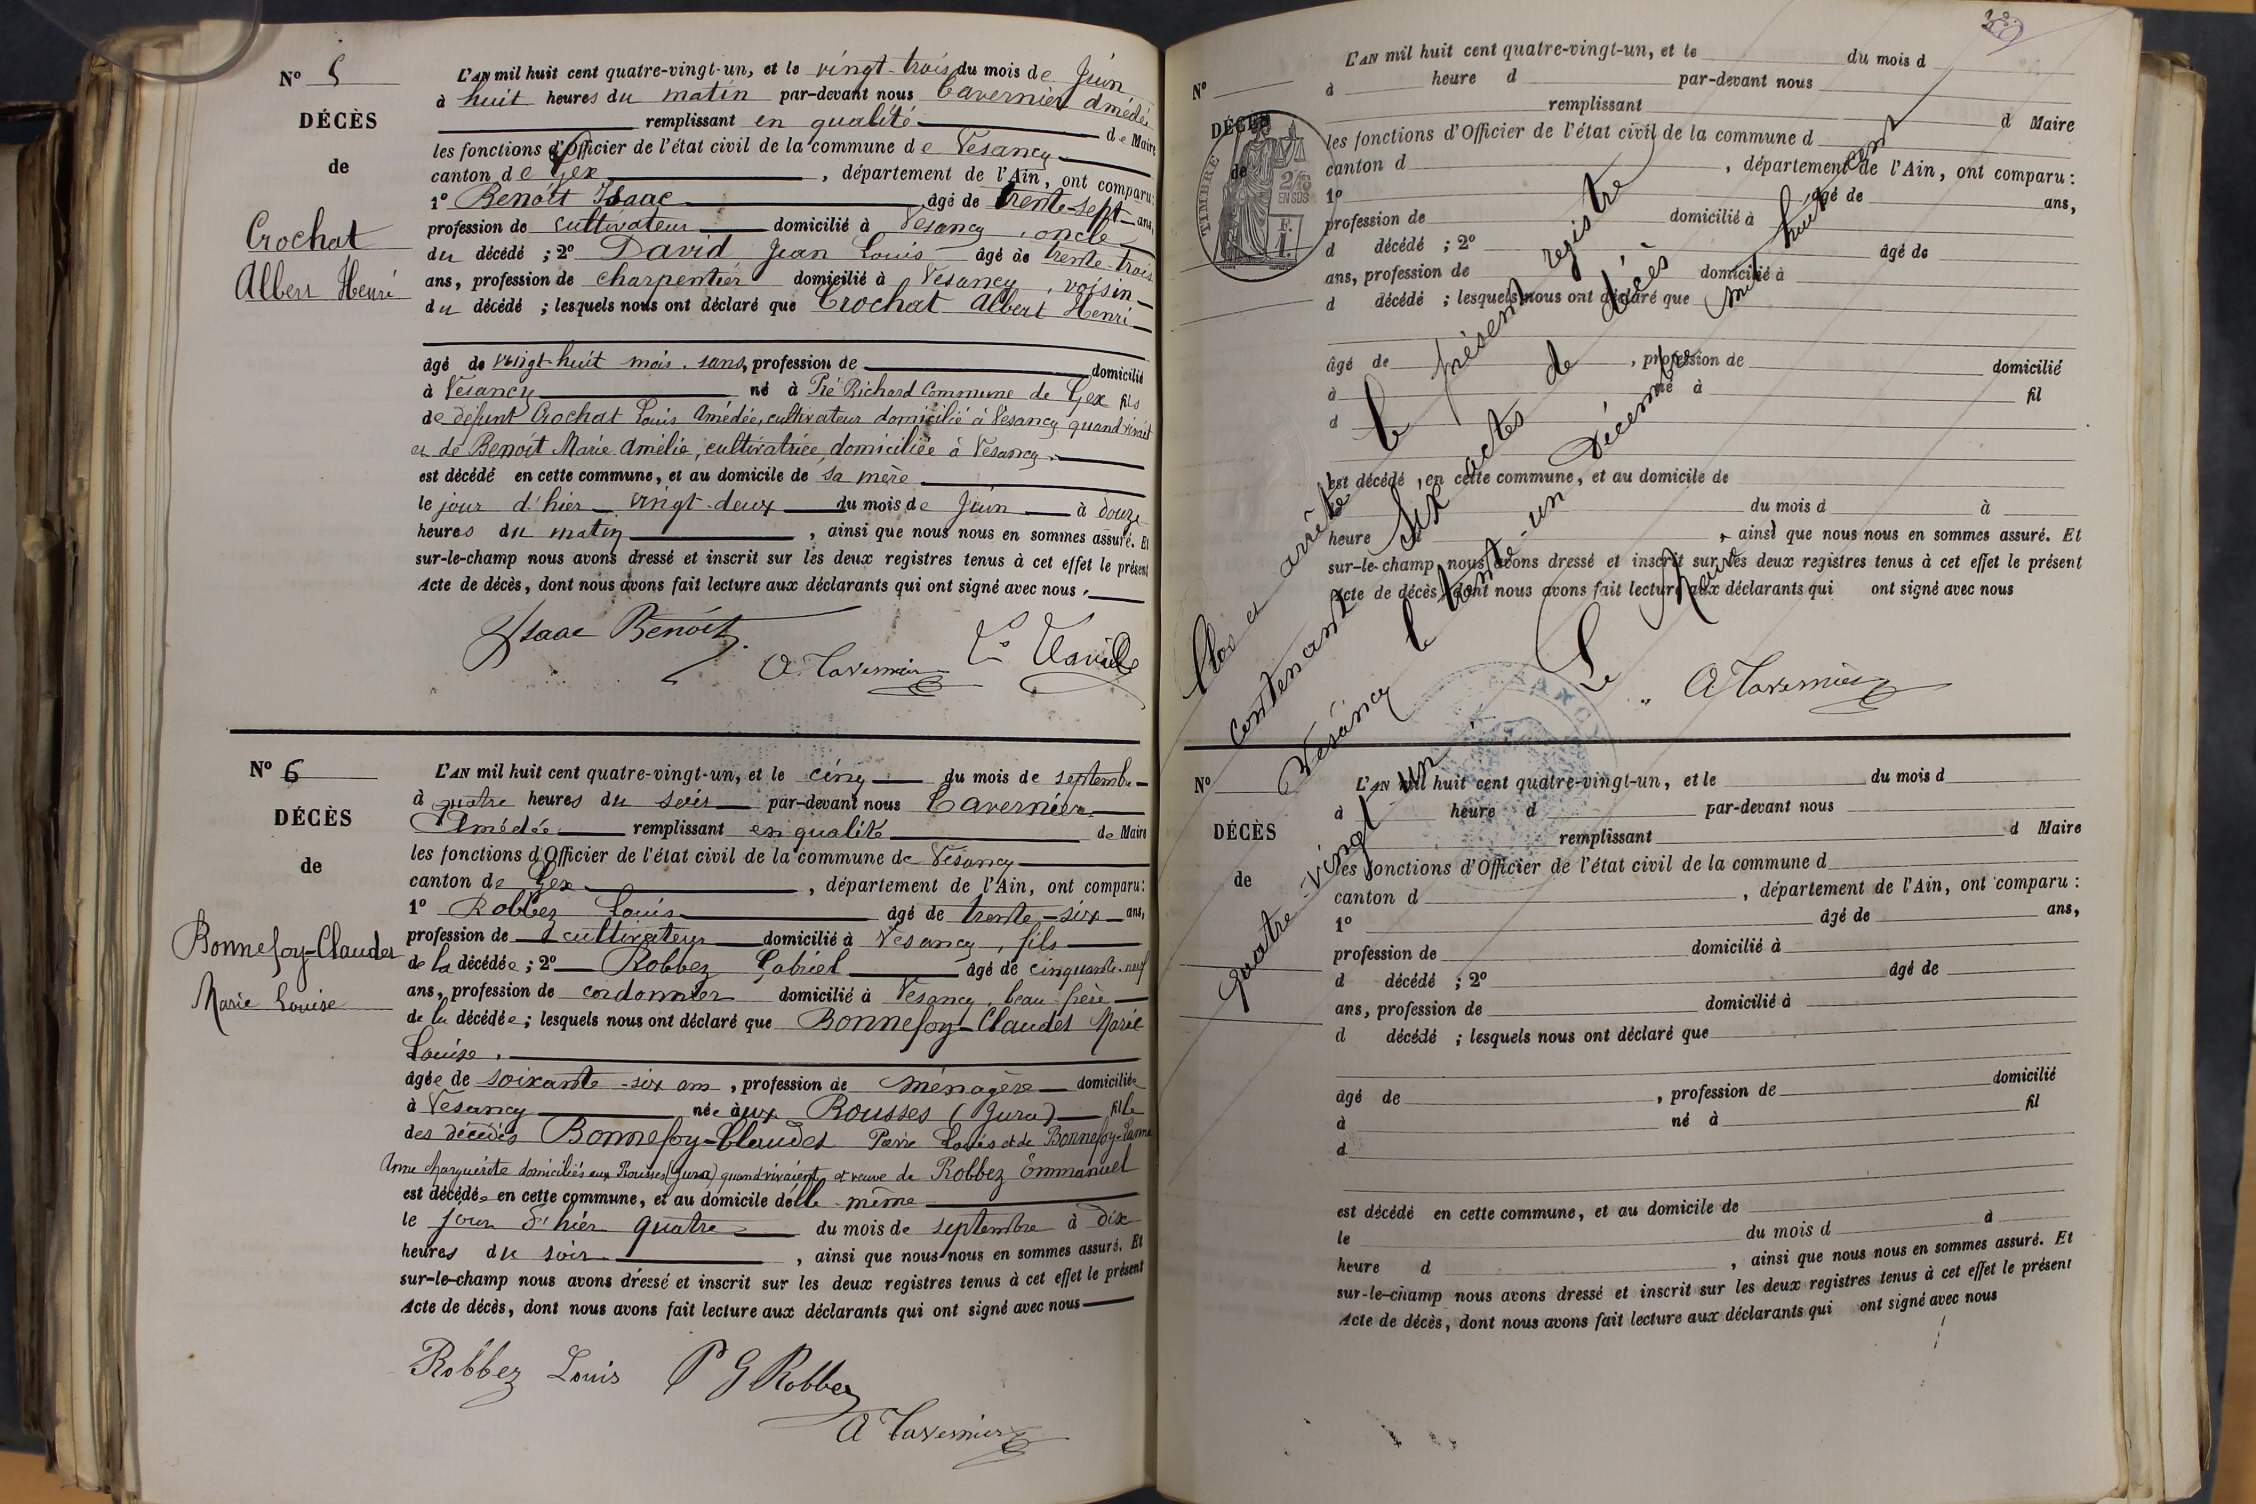 Nº 5
DÉCÈS
de
Crochat
Albert Henri
L'AN mil huit cent quatre-vingt-un, et le vingt-trois du mois de Juin
à huit heures du matin par-devant nous Tavernier Amédée
remplissant en qualité de Maire
les fonctions d'Officier de l'état civil de la commune de Vesancy
canton de Gex, département de l'Ain, ont comparu:
1º Benoît Isaac âgé de trente-sept ans,
profession de cultivateur domicilié à Vesancy, oncle
du décédé ; 2º David Jean Louis âgé de trente-trois
ans, profession de charpentier domicilié à Vesancy, voisin
du décédé ; lesquels nous ont déclaré que Crochat Albert Henri
âgé de vingt-huit mois. sans, profession de domicilié
à Vesancy né à Pré Richard Commune de Gex fils
de défunt Crochat Louis Amédée, cultivateur domicilié à Vesancy quand vivait
et de Benoît Marie Amélie, cultivatrice, domiciliée à Vesancy.
est décédé en cette commune, et au domicile de sa mère
le jour d'hier vingt-deux du mois de Juin à douze
heures du matin, ainsi que nous nous en sommes assuré. Et
sur-le-champ nous avons dressé et inscrit sur les deux registres tenus à cet effet le présent
Acte de décès, dont nous avons fait lecture aux déclarants qui ont signé avec nous.
Isaac Benoît
A. Tavernier
Nº 6
DÉCÈS
de
Bonnefoy-Claudet
Marie Louise
L'AN mil huit cent quatre-vingt-un, et le cinq du mois de septembre
à quatre heures du soir par-devant nous Tavernier
Amédée remplissant en qualité de Maire
les fonctions d'Officier de l'état civil de la commune de Vesancy
canton de Gex, département de l'Ain, ont comparu:
1º Robbez Louis âgé de trente-six ans,
profession de cultivateur domicilié à Vesancy, fils
de la décédée ; 2º Robbez Gabriel âgé de cinquante-neuf
ans, profession de cordonnier domicilié à Vesancy, beau frère
de la décédée ; lesquels nous ont déclaré que Bonnefoy-Claudet Marie
Louise.
âgée de soixante-six ans, profession de ménagère domiciliée
à Vesancy née aux Rousses (Jura) fille
des décédés Bonnefoy-Claudet Pierre Louis et de Bonnefoy
Anne Marguérite domiciliés aux Rousses (Jura) quand vivaient et veuve de Robbez Emmanuel
est décédée en cette commune, et au domicile d'elle-même
le jour d'hier quatre du mois de septembre à dix
heures du soir, ainsi que nous nous en sommes assuré. Et
sur-le-champ nous avons dressé et inscrit sur les deux registres tenus à cet effet le présent
Acte de décès, dont nous avons fait lecture aux déclarants qui ont signé avec nous
Robbez Louis P G Robbez
A Tavernier
Nº
DÉCÈS
de
TIMBRE
2/10 EN SUS
L'AN mil huit cent quatre-vingt-un, et le du mois d
à heure d par-devant nous
remplissant d Maire
les fonctions d'Officier de l'état civil de la commune d
canton d, département de l'Ain, ont comparu :
1º âgé de ans,
profession de domicilié à
d décédé ; 2º âgé de
ans, profession de domicilié à
d décédé ; lesquels nous ont déclaré que
âgé de, profession de domicilié
à né à fil
d
est décédé en cette commune, et au domicile de
du mois d à
heure, ainsi que nous nous en sommes assuré. Et
sur-le-champ nous avons dressé et inscrit sur les deux registres tenus à cet effet le présent
Acte de décès, dont nous avons fait lecture aux déclarants qui ont signé avec nous
Clos et arrêté le présent registre
contenant six actes de décès
Vésancy le trente-un Décembre mil huit cent
quatre-vingt-un.
Le Maire
A Tavernier
Nº
DÉCÈS
de
L'AN mil huit cent quatre-vingt-un, et le du mois d
à heure d par-devant nous
remplissant d Maire
les fonctions d'Officier de l'état civil de la commune d
canton d, département de l'Ain, ont comparu :
1º âgé de ans,
profession de domicilié à
d décédé ; 2º âgé de
ans, profession de domicilié à
d décédé ; lesquels nous ont déclaré que
âgé de, profession de domicilié
à né à fil
d
est décédé en cette commune, et au domicile de
le du mois d à
heure d, ainsi que nous nous en sommes assuré. Et
sur-le-champ nous avons dressé et inscrit sur les deux registres tenus à cet effet le présent
Acte de décès, dont nous avons fait lecture aux déclarants qui ont signé avec nous